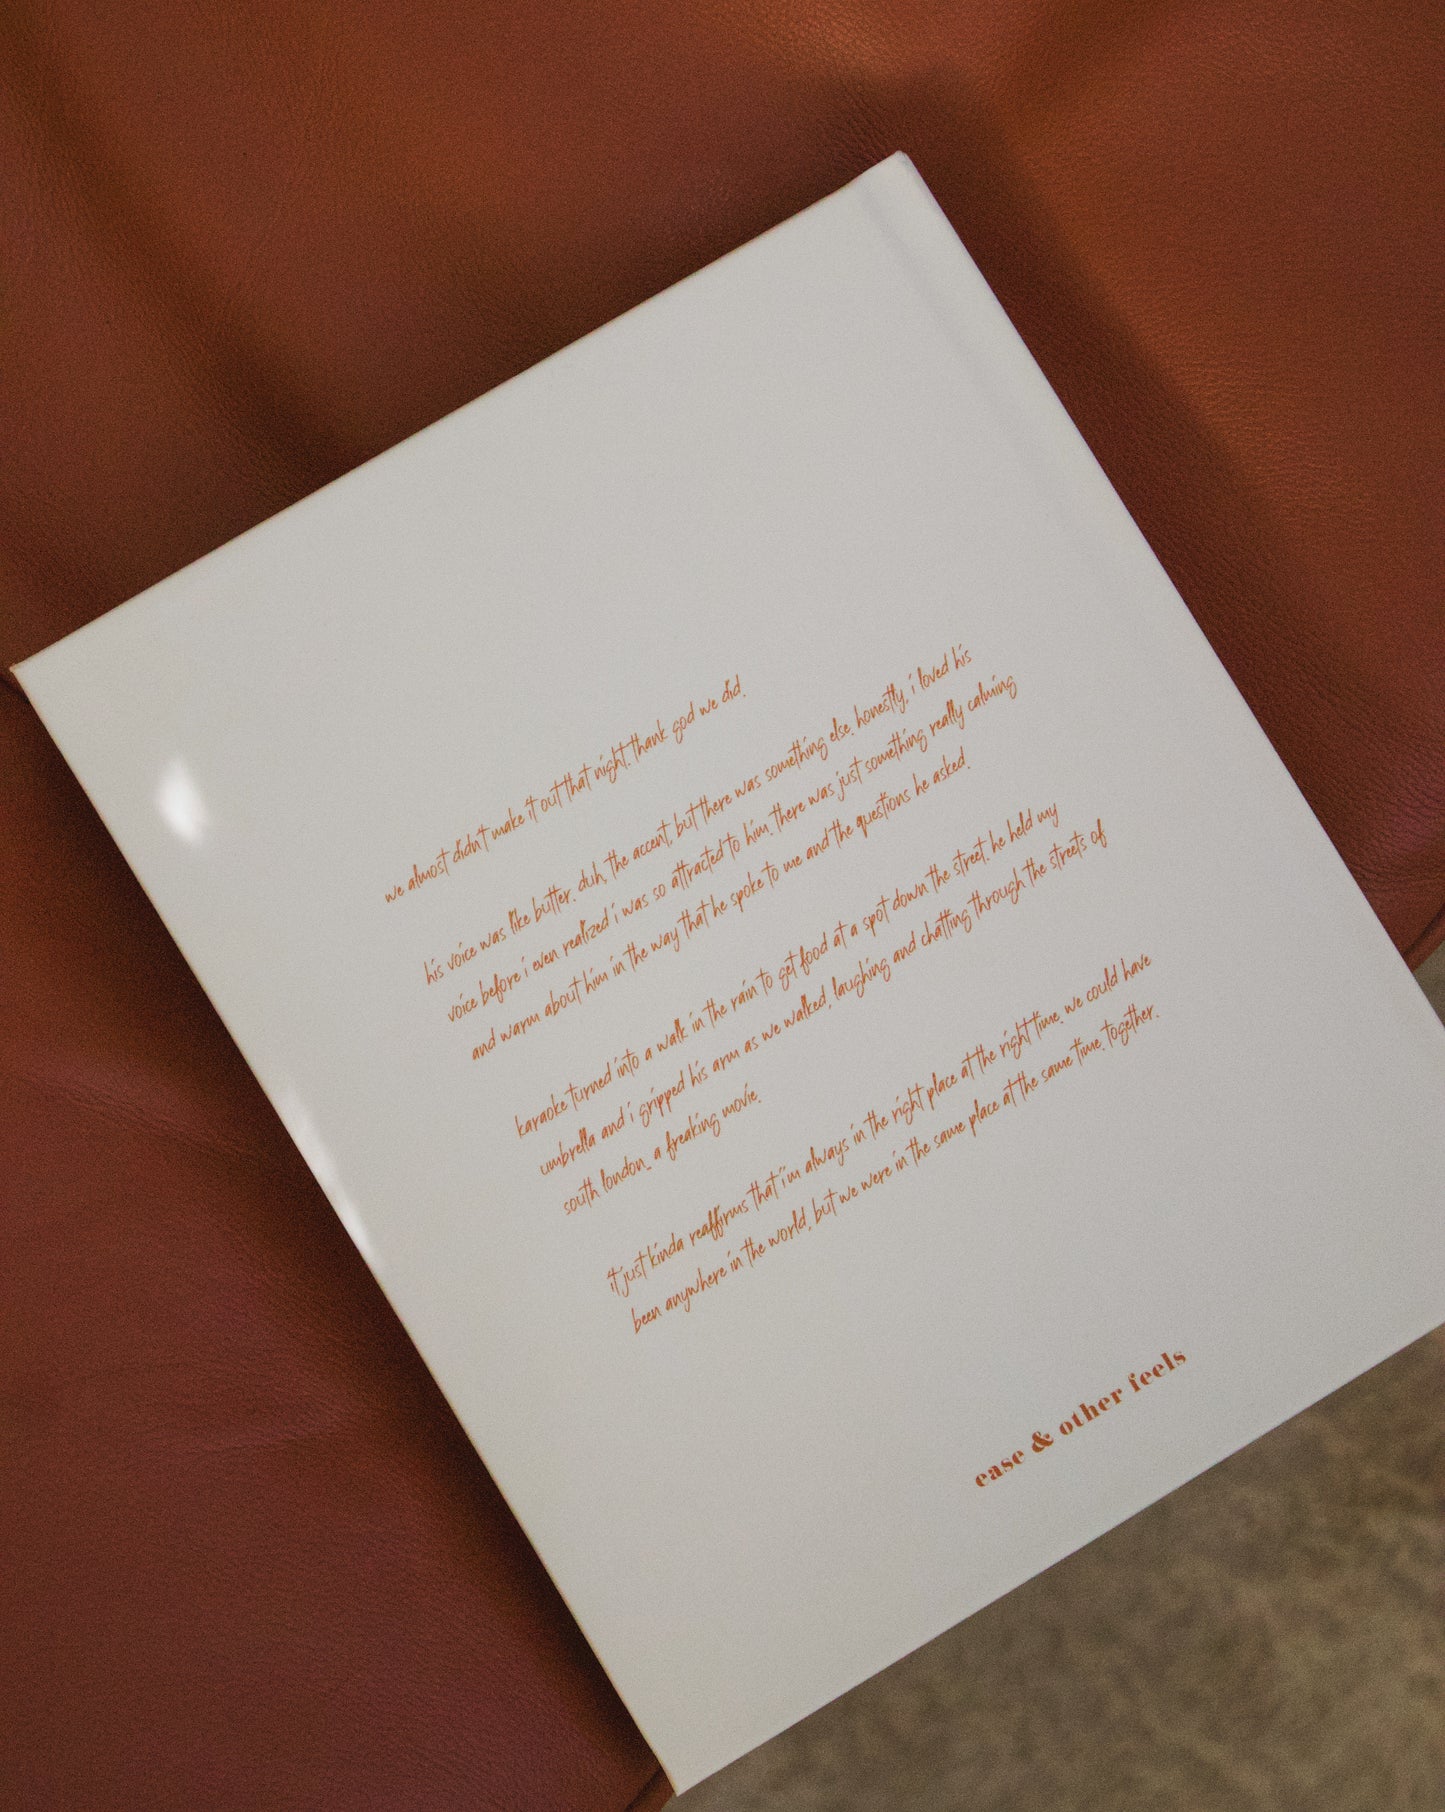 we almost didn't make it out that night. thank god we did.
his voice was like butter. duh, the accent, but there was something else. honestly, i loved his
voice before i even realized i was so attracted to him. there was just something really calming
and warm about him in the way that he spoke to me and the questions he asked.
karaoke turned into a walk in the rain to get food at a spot down the street. he held my
umbrella and i gripped his arm as we walked, laughing and chatting through the streets of
south london. a freaking movie.
it just kinda reaffirms that i'm always in the right place at the right time. we could have
been anywhere in the world, but we were in the same place at the same time. together.
ease & other feels